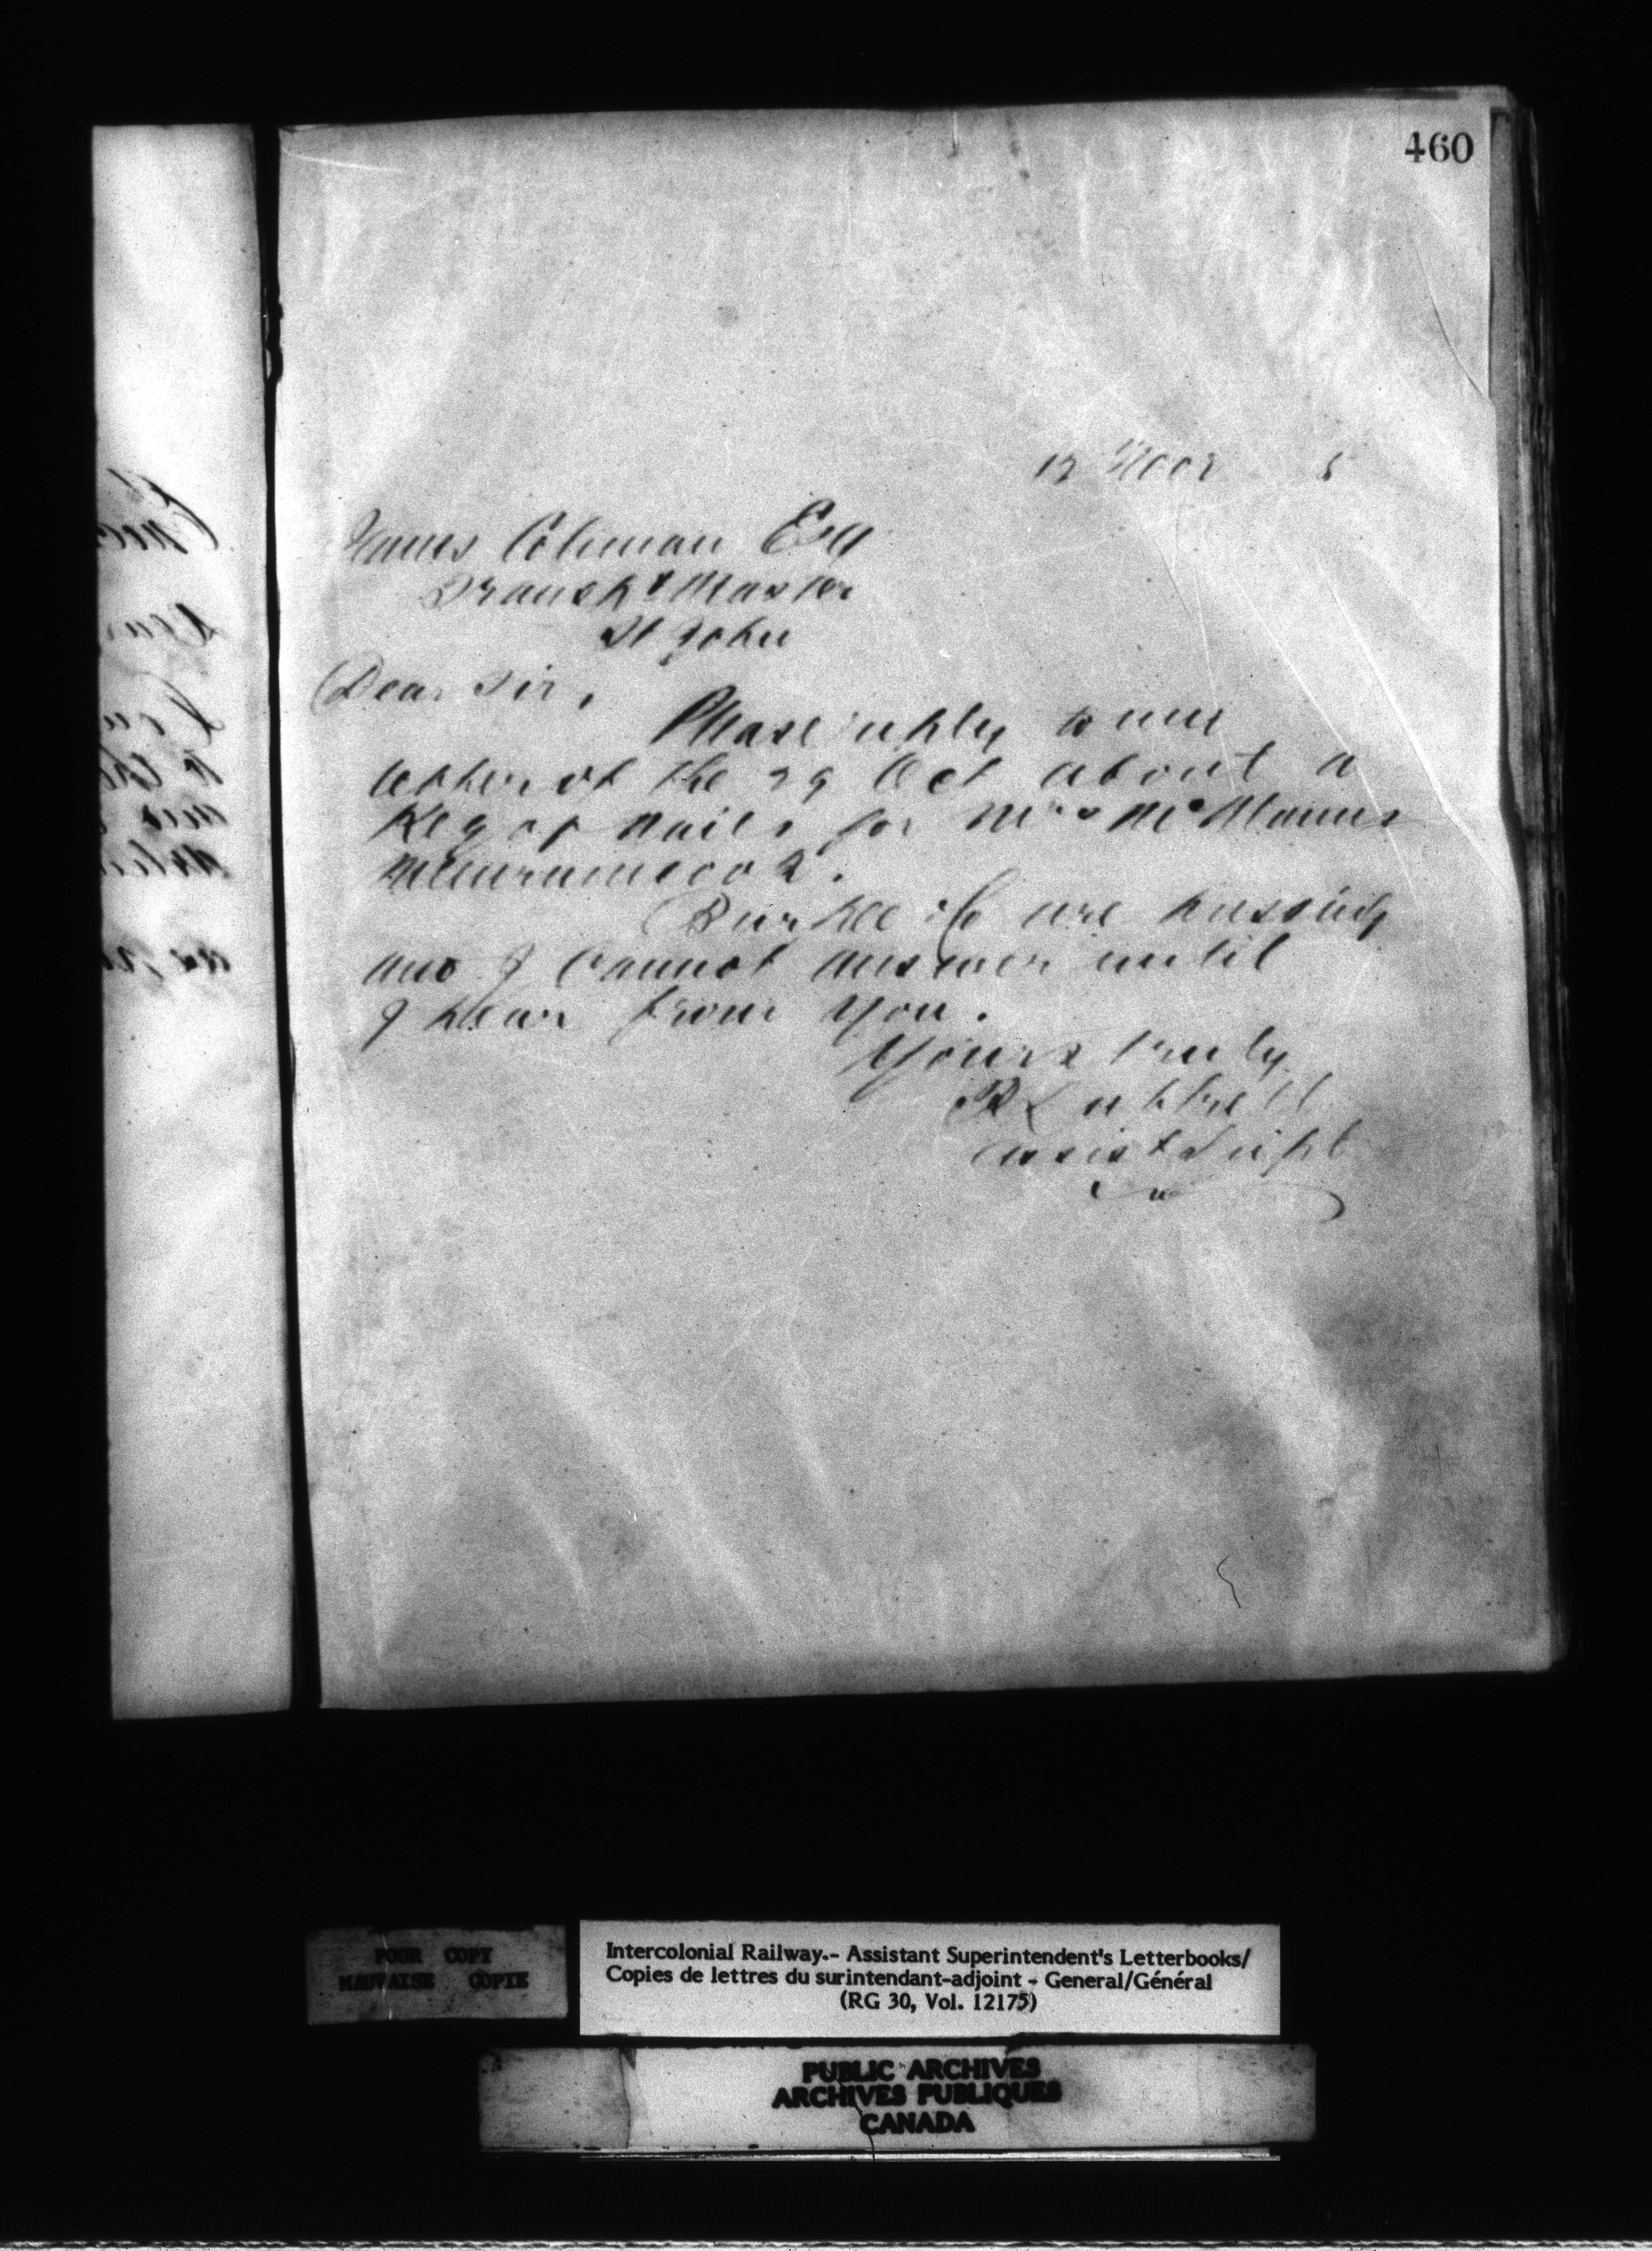 460
12 Nov 5
James Coleman Esq
Transpt Master
St John
Dear Sir,
Please reply to my
letter of the 29 Oct about a
Keg of nails for Mrs McManus
Memramcook.
Burpee & Co are pressing
and I cannot answer until
I hear from you.
Yours truly
R Luttrell
Assist Supt
POOR COPY
MAUVAISE COPIE
Intercolonial Railway.- Assistant Superintendent's Letterbooks/
Copies de lettres du surintendant-adjoint - General/Général
(RG 30, Vol. 12175)
PUBLIC ARCHIVES
ARCHIVES PUBLIQUES
CANADA